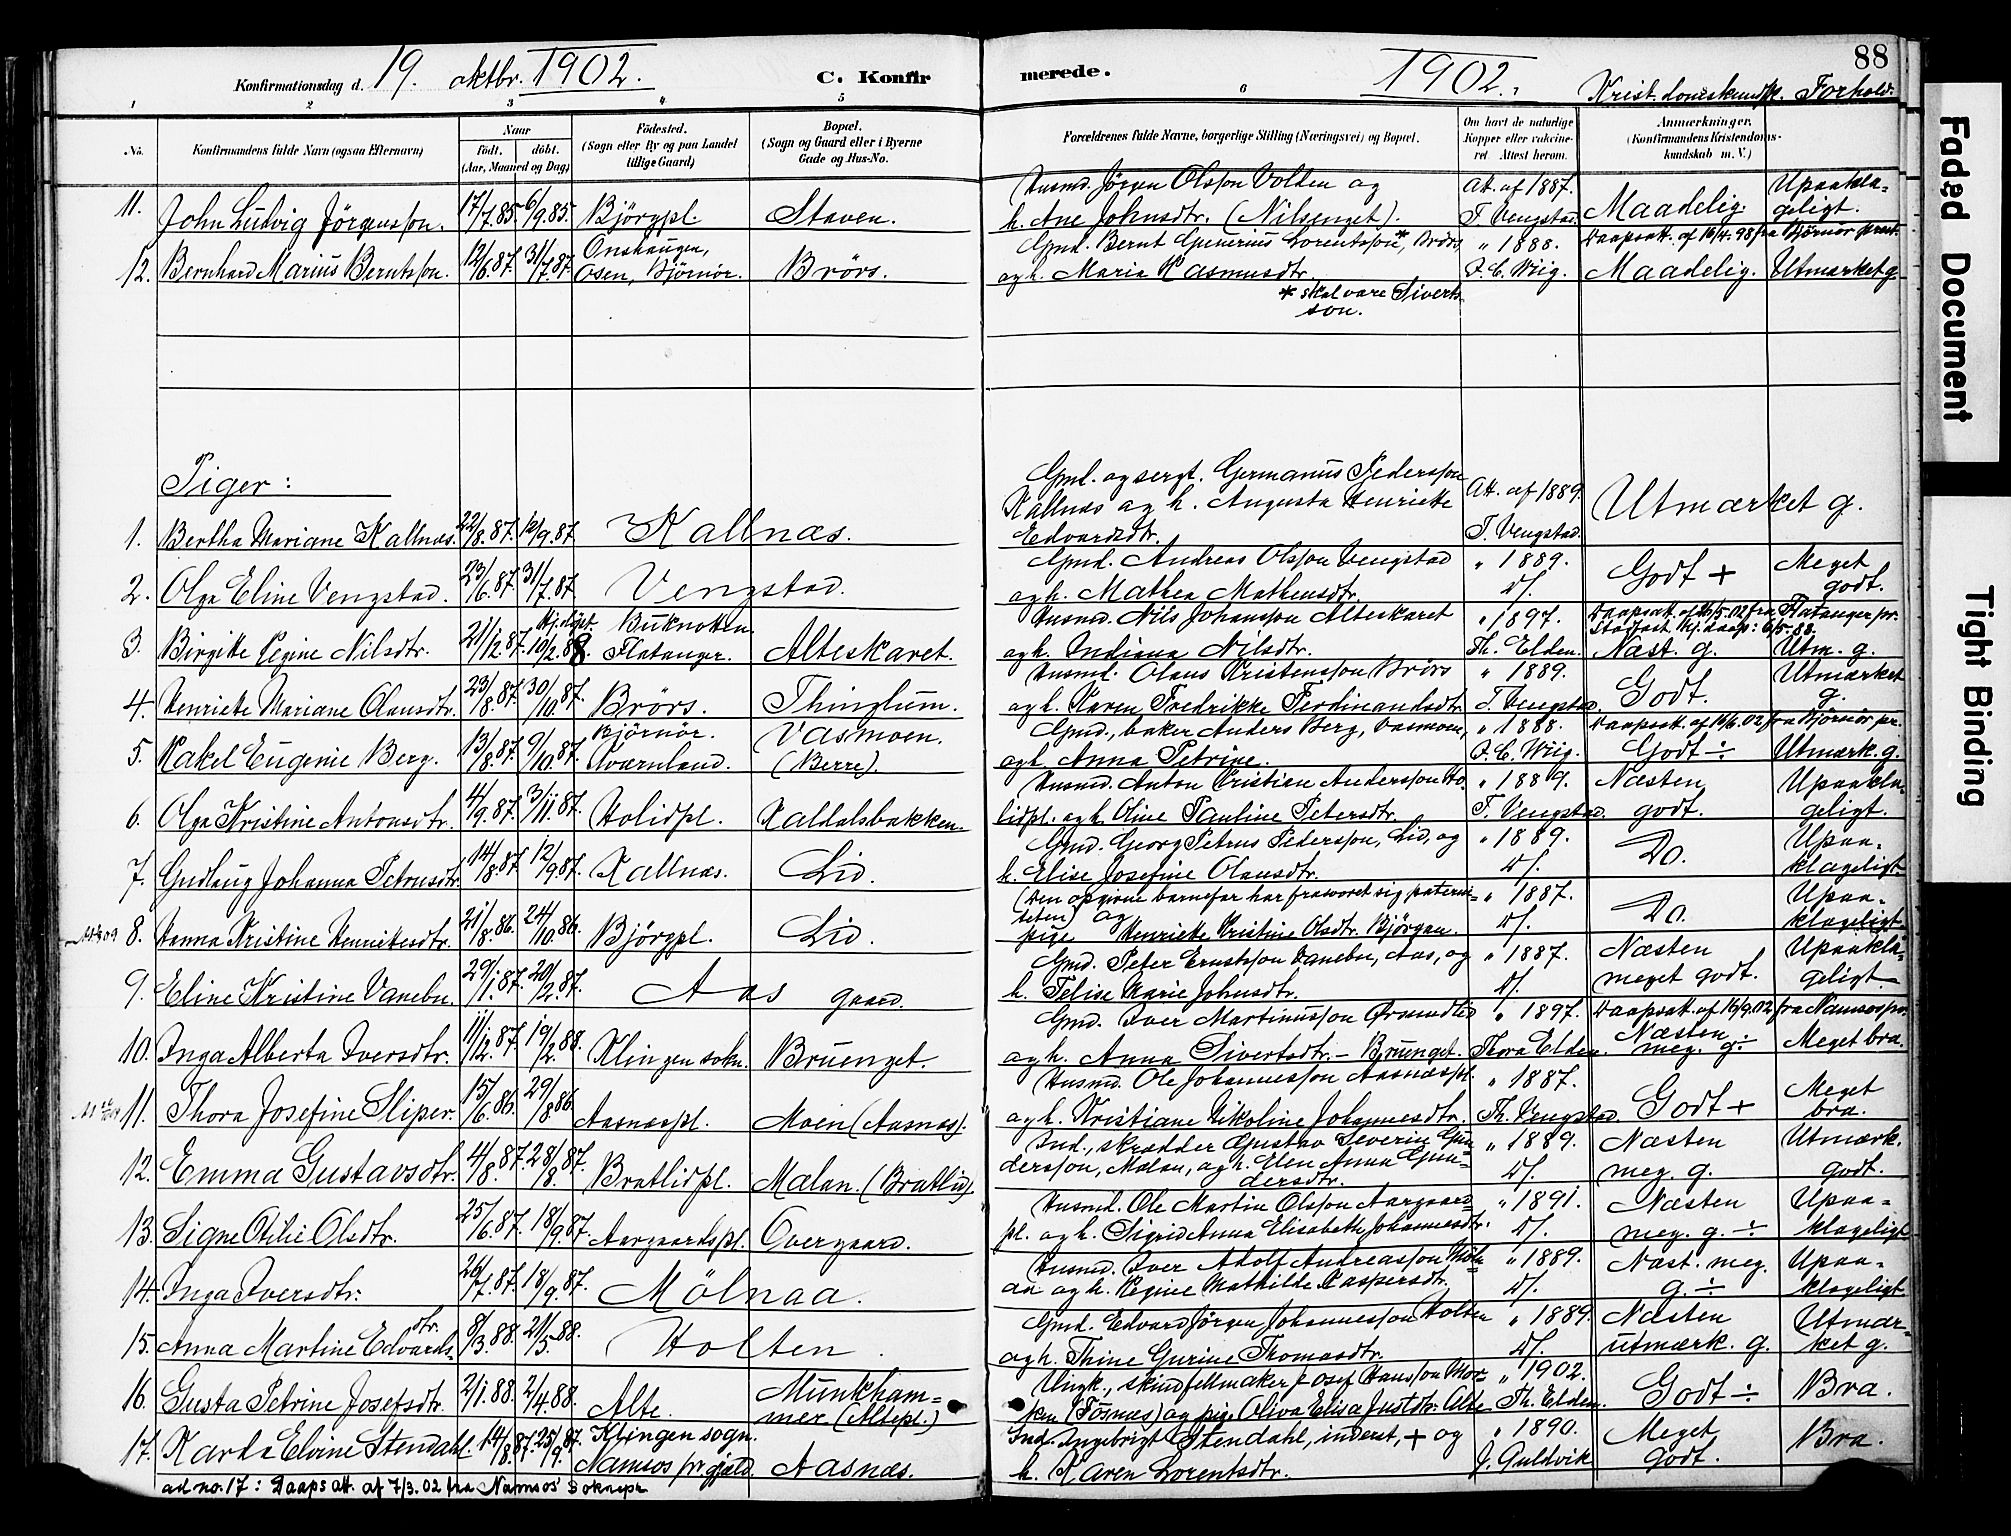 88
Konfirmationsdag d. 19. oktbr. 1902. C. Konfirmerede. 1902. Kristendomskundsk. Forhold.
1 2 3 4 5 6
No. Konfirmandens fulde Navn (ogsaa Efternavn) Naar født. døbt. (Aar, Maaned og Dag) Fødested. (Sogn eller By og paa Landet tillige Gaard) Bopæl. (Sogn og Gaard eller i Byerne Gade og Hus-No. Forældrenes fulde Navne, borgerlige Stilling (Næringsvei) og Bopæl. Om havt de naturlige Kopper eller vakcineret. Attest herom. Anmærkninger. (Konfirmandens Kristendomskundskab m. V.)
11. John Ludvig Jörgensson. 17/7.85. 6/9.85. Björgpl. Staven. Husmd. Jörgen Olsson Volden og h. Ane Johnsdtr. (Nilsenget). Att. af 1887. T. Vengstad. Maadelig. Upaaklageligt.
12. Bernhard Marius Berntsson. 12/6.87. 31/7.87. Onshaugen, Osen, Björnör. Brörs. Gmd. Bernt Generius Lorentsson*, Brörs og h. Maria Rasmusdtr. " 1888. F. C. Wiig. Daapsatt. af 16/4.98 fra Björnör prest. Maadelig. Utmærket g.
* skal være Sivertsson.
Piger:
1. Bertha Mariane Kallnæs. 22/8.87. 12/9.87. Kallnæs. Gmd. og sergt. Germanus Pedersson Kallnæs og h. Augusta Henriette Edvardsdtr. Att. af 1889. T. Vengstad. Utmærket g.
2. Olga Eline Vengstad. 23/6.87. 31/7.87. Vengstad. Gmd. Andreas Olsson Vengstad og h. Mathea Mathensdtr. " 1889. Ds. Godt + Meget godt.
3. Birgitte Regine Nilsdtr. 21/12.87. Hj.döpt. 10/2.88. Buknotten. Flatanger. Alteskaret. Husmd. Nils Johansson Alteskaret og h. Indiana Nilsdtr. " 1897. Th. Elden. Daapsatt. af 16/5.02 fra Flatanger pr. Stadfæst. hj.daap: 6/5.88. Næst. g. Utm. g.
4. Henriette Mariane Olausdtr. 23/8.87. 30/10.87. Brörs. Thinglum. Husmd. Olaus Kristensson Brörs og h. Karen Fredrikke Ferdinandsdtr. " 1889. T. Vengstad. Godt. Utmærket g.
5. Rakel Eugenie Berg. 13/8.87. 9/10.87. Björnör. Kværnland. Vasmoen. (Berre). Gmd., baker Anders Berg, Vasmoen, og h. Anna Petrine. " 1888. F. C. Wiig. Daapsatt. af 16/6.02 fra Björnör pr. Godt ÷ Utmærk. g.
6. Olga Kristine Antonsdtr. 4/9.87. 3/11.87. Holidpl. Kaldalsbakken. Husmd. Anton Kristian Andersson Holidpl. og h. Oline Pauline Petersdtr. " 1889. T. Vengstad. Næsten godt. Upaaklageligt.
7. Gudlaug Johanna Petrusdtr. 14/8.87. 12/9.87. Kallnæs. Lid. Gmd. Georg Petrus Pedersson, Lid, og h. Elise Josefine Olausdtr. " 1889. Ds. Do. Upaaklageligt.
8. Hanna Kristine Henriettesdtr. 21/8.86. 24/10.86. Björgpl. Lid. (Den opgivne barnefar har frasvoret sig paterniteten) og pige Henriette Kristine Olsdtr. Björgan. " 1887. Ds. Do. Upaaklageligt.
9. Eline Kristine Vanebu. 29/1.87. 20/2.87. Aas gaard. Gmd. Peter Ernstsson Vanebu, Aas, og h. Felise Marie Johnsdtr. " 1887. Ds. Næsten meget godt. Upaaklageligt.
10. Inga Alberta Iversdtr. 11/12.87. 19/2.88. Klingen sokn. Bruenget. Gmd. Iver Martinusson Örsundlid og h. Anna Sivertsdtr. - Bruenget. " 1897. Thora Elden. Daapsatt. af 16/9.02 fra Namsos pr. Næsten meg. g. ÷ Meget bra.
11. Thora Josefine Sliper. 15/6.86. 29/8.86. Aasnæspl. Moen (Aasnæs). Husmd. Ole Johannesson Aasnæspl. og h. Kristiane Nikoline Johannesdtr. " 1887. Th. Vengstad. Godt + Meget bra.
12. Emma Gustavsdtr. 4/8.87. 28/8.87. Bratlidpl. Mælan. (Bratlid). Ind., skrædder Gustav Severin Gundersson, Mælan, og h. Elen Anna Gundersdtr. " 1889. Ds. Næsten meg. g. Utmærk. godt.
13. Signe Otilie Olsdtr. 25/6.87. 18/9.87. Aargaardspl. Overgaard. Husmd. Ole Martin Olsson Aargaardpl. og h. Sigrid Anna Elisabeth Johannesdtr. " 1891. Ds. Næsten meg. g. ÷ Upaaklageligt
14. Inga Iversdtr. 26/7.87. 18/9.87. Mölnaa. Husmd. Iver Adolf Andreasson Mölnaa og h. Regine Mathilde Kaspersdtr. " 1889. Ds. Næst. meg. g. ÷ Upaaklageligt
15. Anna Martine Edvardsdtr. 8/3.88. 21/5.88. Holten. Gmd. Edvard Jörgen Johannesson Holten og h. Thine Gurine Thomasdtr. " 1889. Ds. Næsten utmærk. g. Utmærket g.
16. Gusta Petrine Josefsdtr. 2/1.88. 2/4.88. Alte. Munkhammer (Altepl.) Ungk., skindfellmaker Josef Hansson Morken (Fosnæs) og pige Oliva Elisa Justdtr. Alte " 1902. Th. Elden. Godt ÷ Bra.
17. Karla Elvine Stendahl. 14/8.87. 25/9.87. Klingen sogn. Namsos prgjæld. Aasnæs. Ind. Ingebrigt Stendahl, inderst, + og h. Karen Lorentsdtr. " 1890. J. Guldvik Meget godt. Bra.
ad no. 17: Daapsatt. af 7/3.02 fra Namsos Sokneprr
Faded Document
Tight Binding